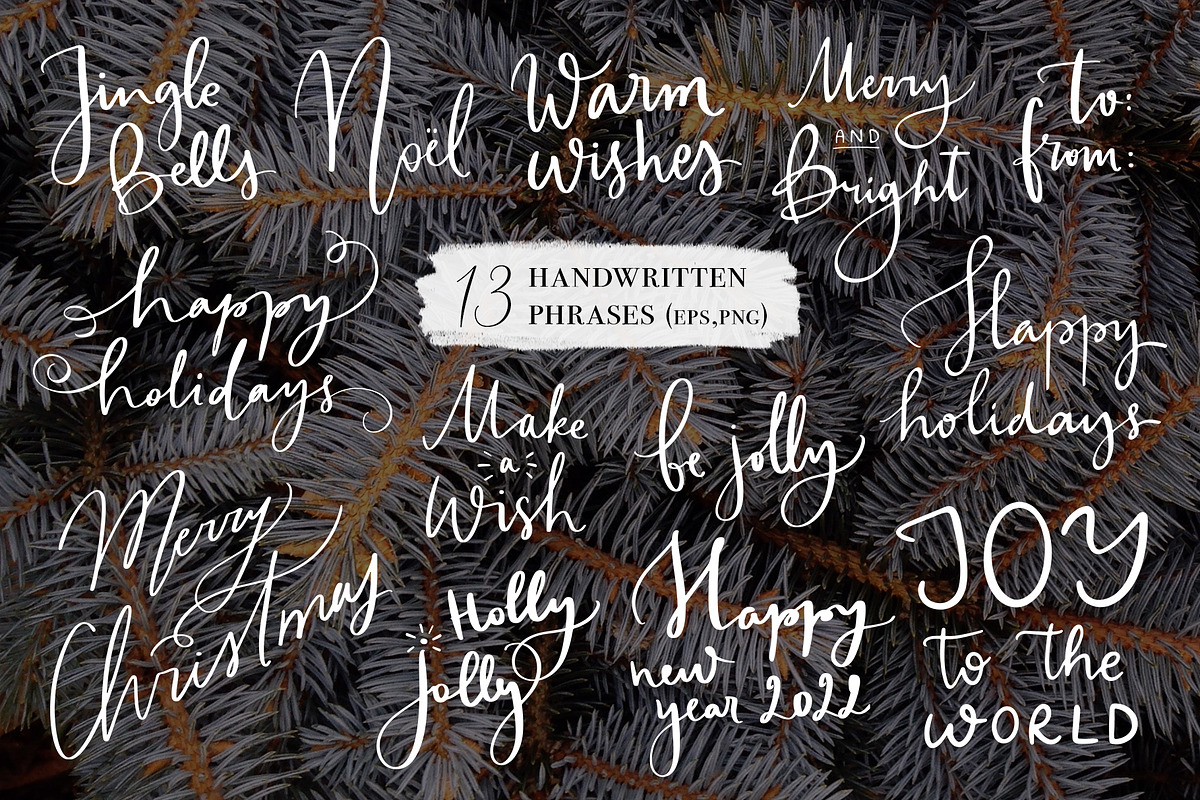 Jingle
Bells
Noël
Warm
wishes
Merry
AND
Bright
to:
from:
happy
holidays
13 HANDWRITTEN
PHRASES (EPS,PNG)
Happy
holidays
Make
a
Wish
be jolly
Merry
Christmas
Holly
Jolly
Happy
new
year 2022
JOY
to the
WORLD